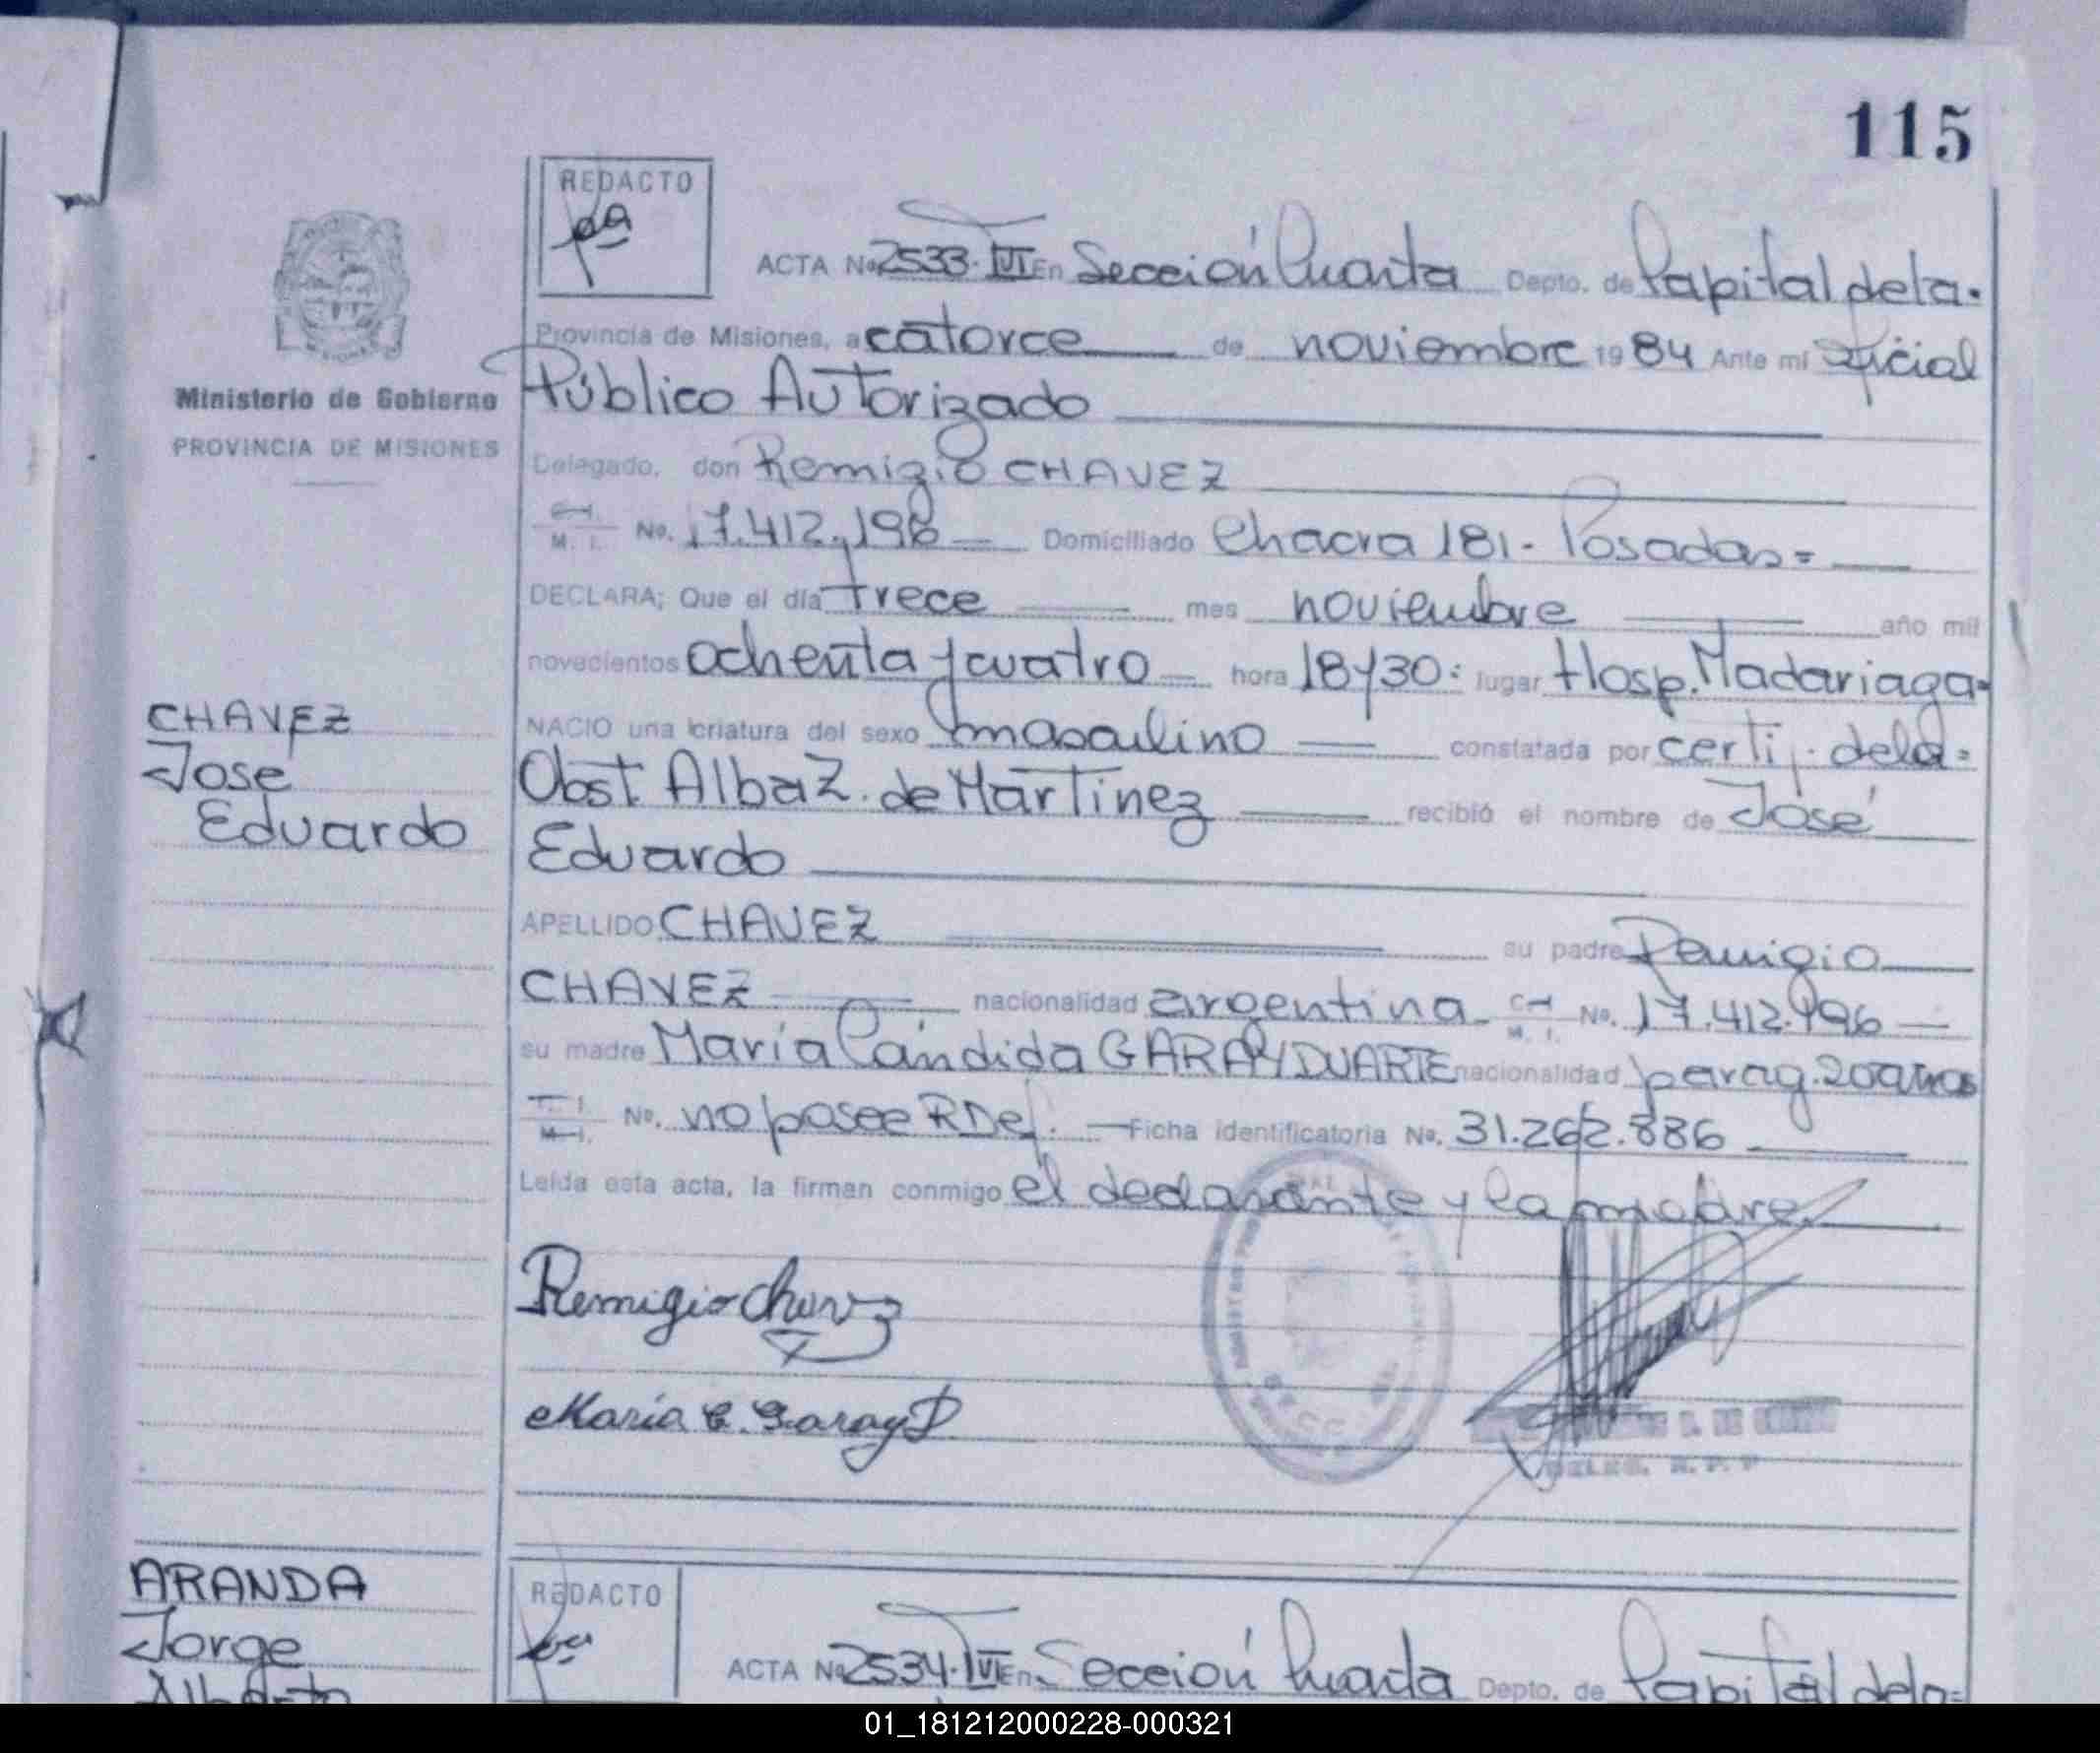 115
REDACTO
ACTA No 2533-TVI En Sección Cuarta Depto. de Capital de la.
Provincia de Misiones, a catorce de noviembre 1984 Ante mi Oficial
Ministerio de Gobierno
PROVINCIA DE MISIONES
Público Autorizado
Delegado, don Remigio CHAVEZ
C.I. M. I. No. 17.412.196 Domiciliado Chacra 181- Posadas=
DECLARA; Que el día trece mes noviembre año mil
novecientos ochenta y cuatro hora 18y30: lugar Hosp. Madariaga-
CHAVEZ
José
Eduardo
NACIO una criatura del sexo masculino constatada por certif. de la=
Obst. Alba Z. de Martinez recibió el nombre de José
Eduardo
APELLIDO CHAVEZ su padre Remigio
CHAVEZ nacionalidad argentina C.I. M. I. No. 17.412.196
su madre María Cándida GARAY DUARTE nacionalidad parag. 20 años
C.I. M.I. No. no posee R Def. Ficha identificatoria No. 31.262.886
Leída esta acta, la firman conmigo el declarante y la madre.
Remigio Chavez
María C. Garay D
DELEG. R. P. P
ARANDA
Jorge
Alberto
REDACTO
ACTA No 2534-TVI En Sección Cuarta Depto. de Capital de la=
01_181212000228-000321